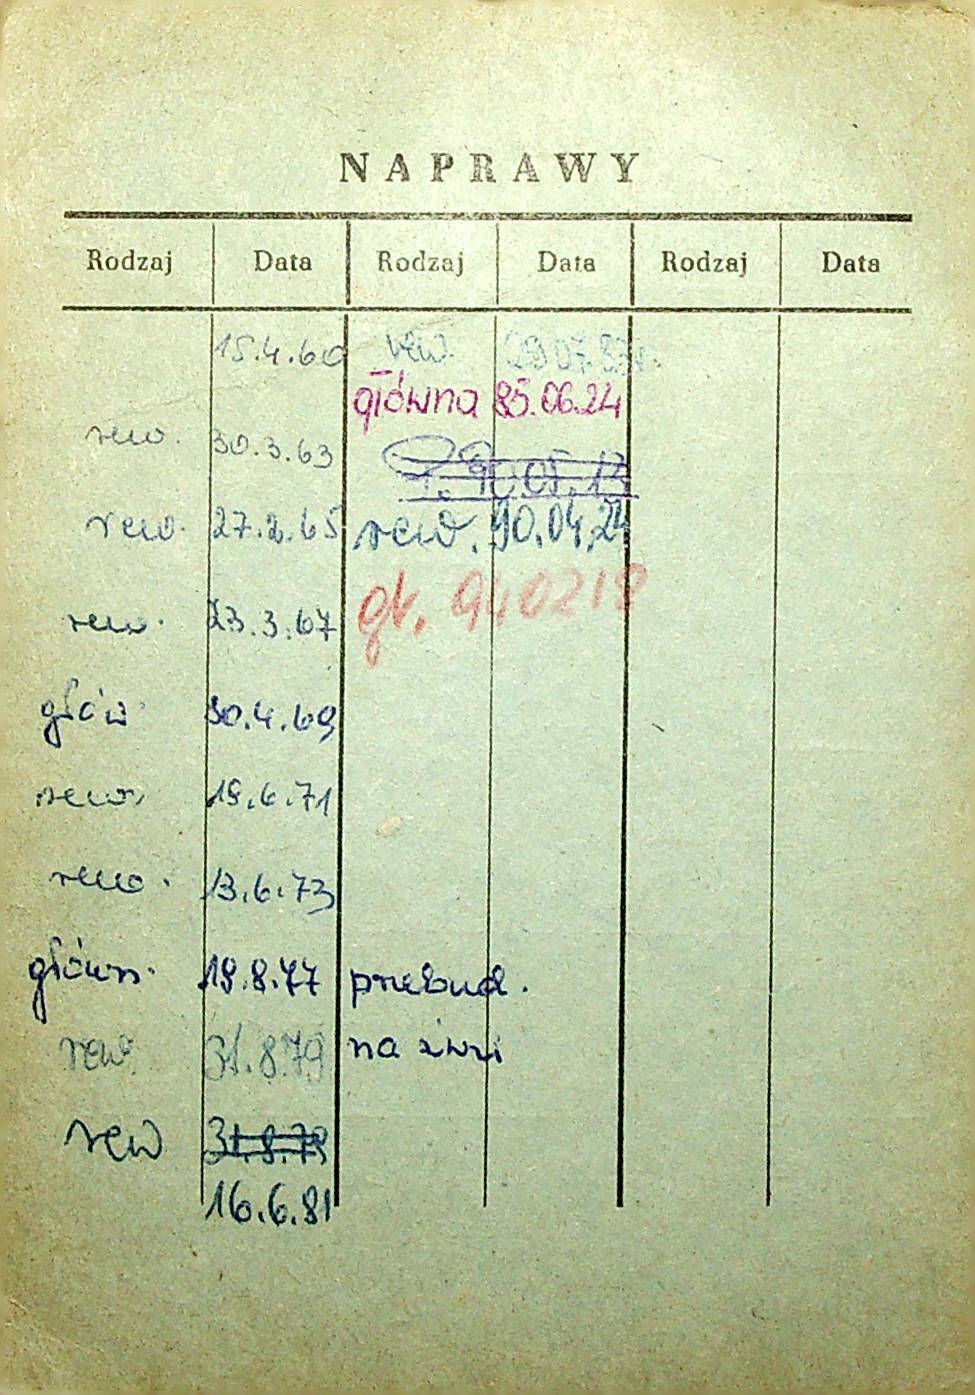 NAPRAWY
Rodzaj Data Rodzaj Data Rodzaj Data
15.4.60
rew. 30.3.63
rew. 27.2.65
rew. 23.3.67
głów 30.4.69
rew. 19.6.71
rew. 13.6.73
główn. 19.8.77 przebud.
rew. 31.8.79 na
rew 31.8.79
16.6.81
rew.
główna 85.06.24
90.05.13
rew. 90.04.24
gł. 940218